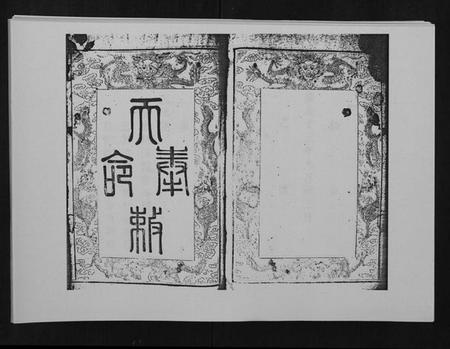 奉
天敕
命